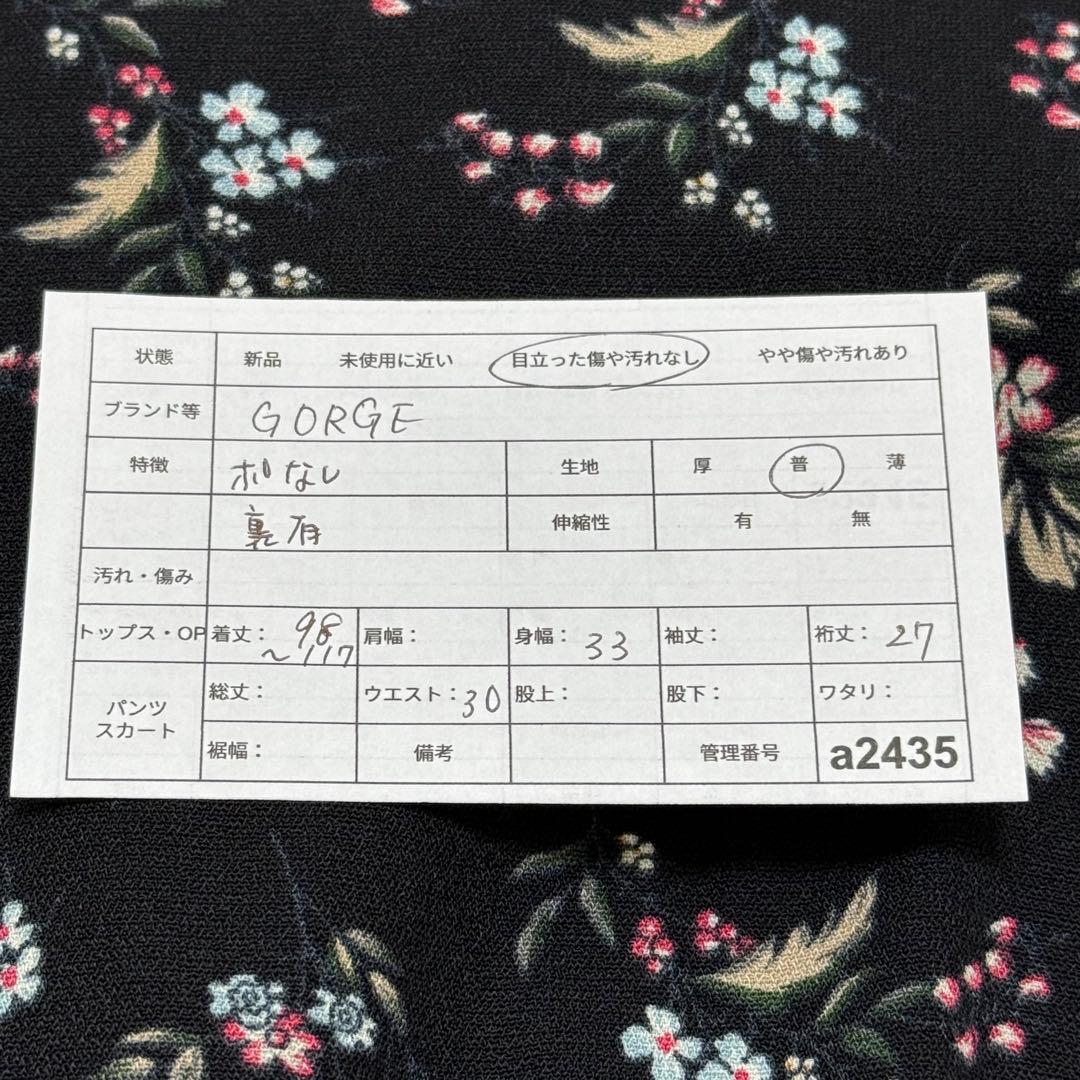 状態 新品 未使用に近い 目立った傷や汚れなし やや傷や汚れあり
ブランド等 GORGE
特徴 ポなし 生地 厚 普 薄
裏有 伸縮性 有 無
汚れ・傷み
トップス・OP 着丈： 98 ～117 肩幅： 身幅： 33 袖丈： 裄丈： 27
パンツ スカート 総丈： ウエスト：30 股上： 股下： ワタリ：
裾幅： 備考 管理番号 a2435